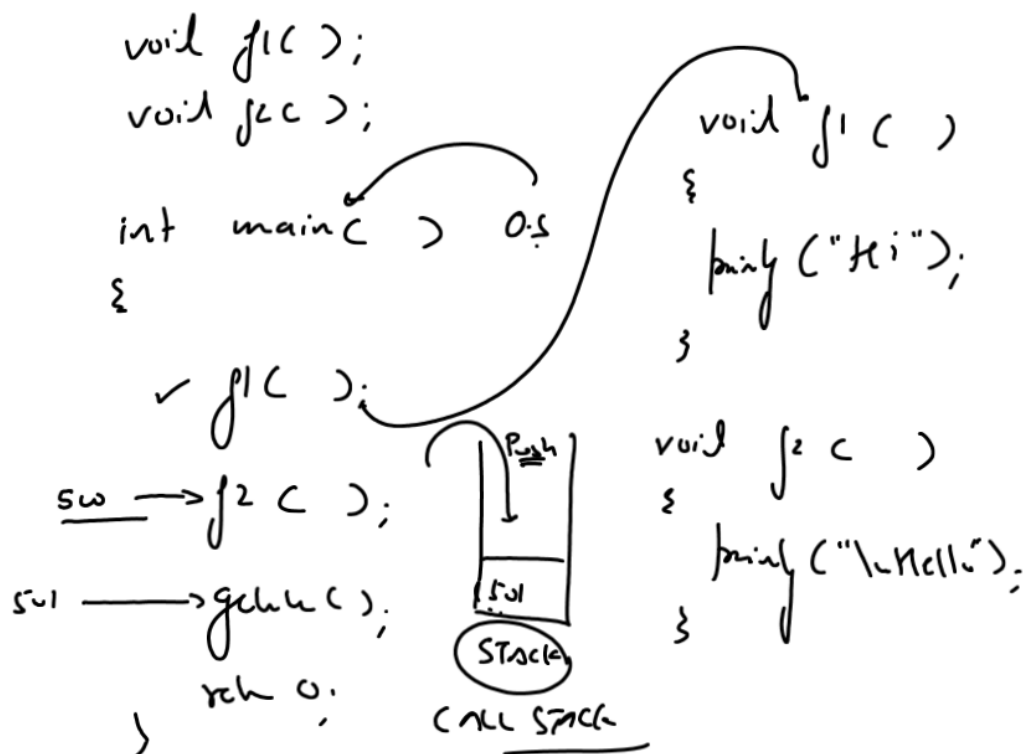 void f1( );
void f2( );
int main( ) O.S
{
f1( );
500 f2( );
501 getch();
0;
}
Push
501
STACK
CALL STACK
void f1( )
{
printf("Hi");
}
void f2( )
{
printf("\nHello");
}